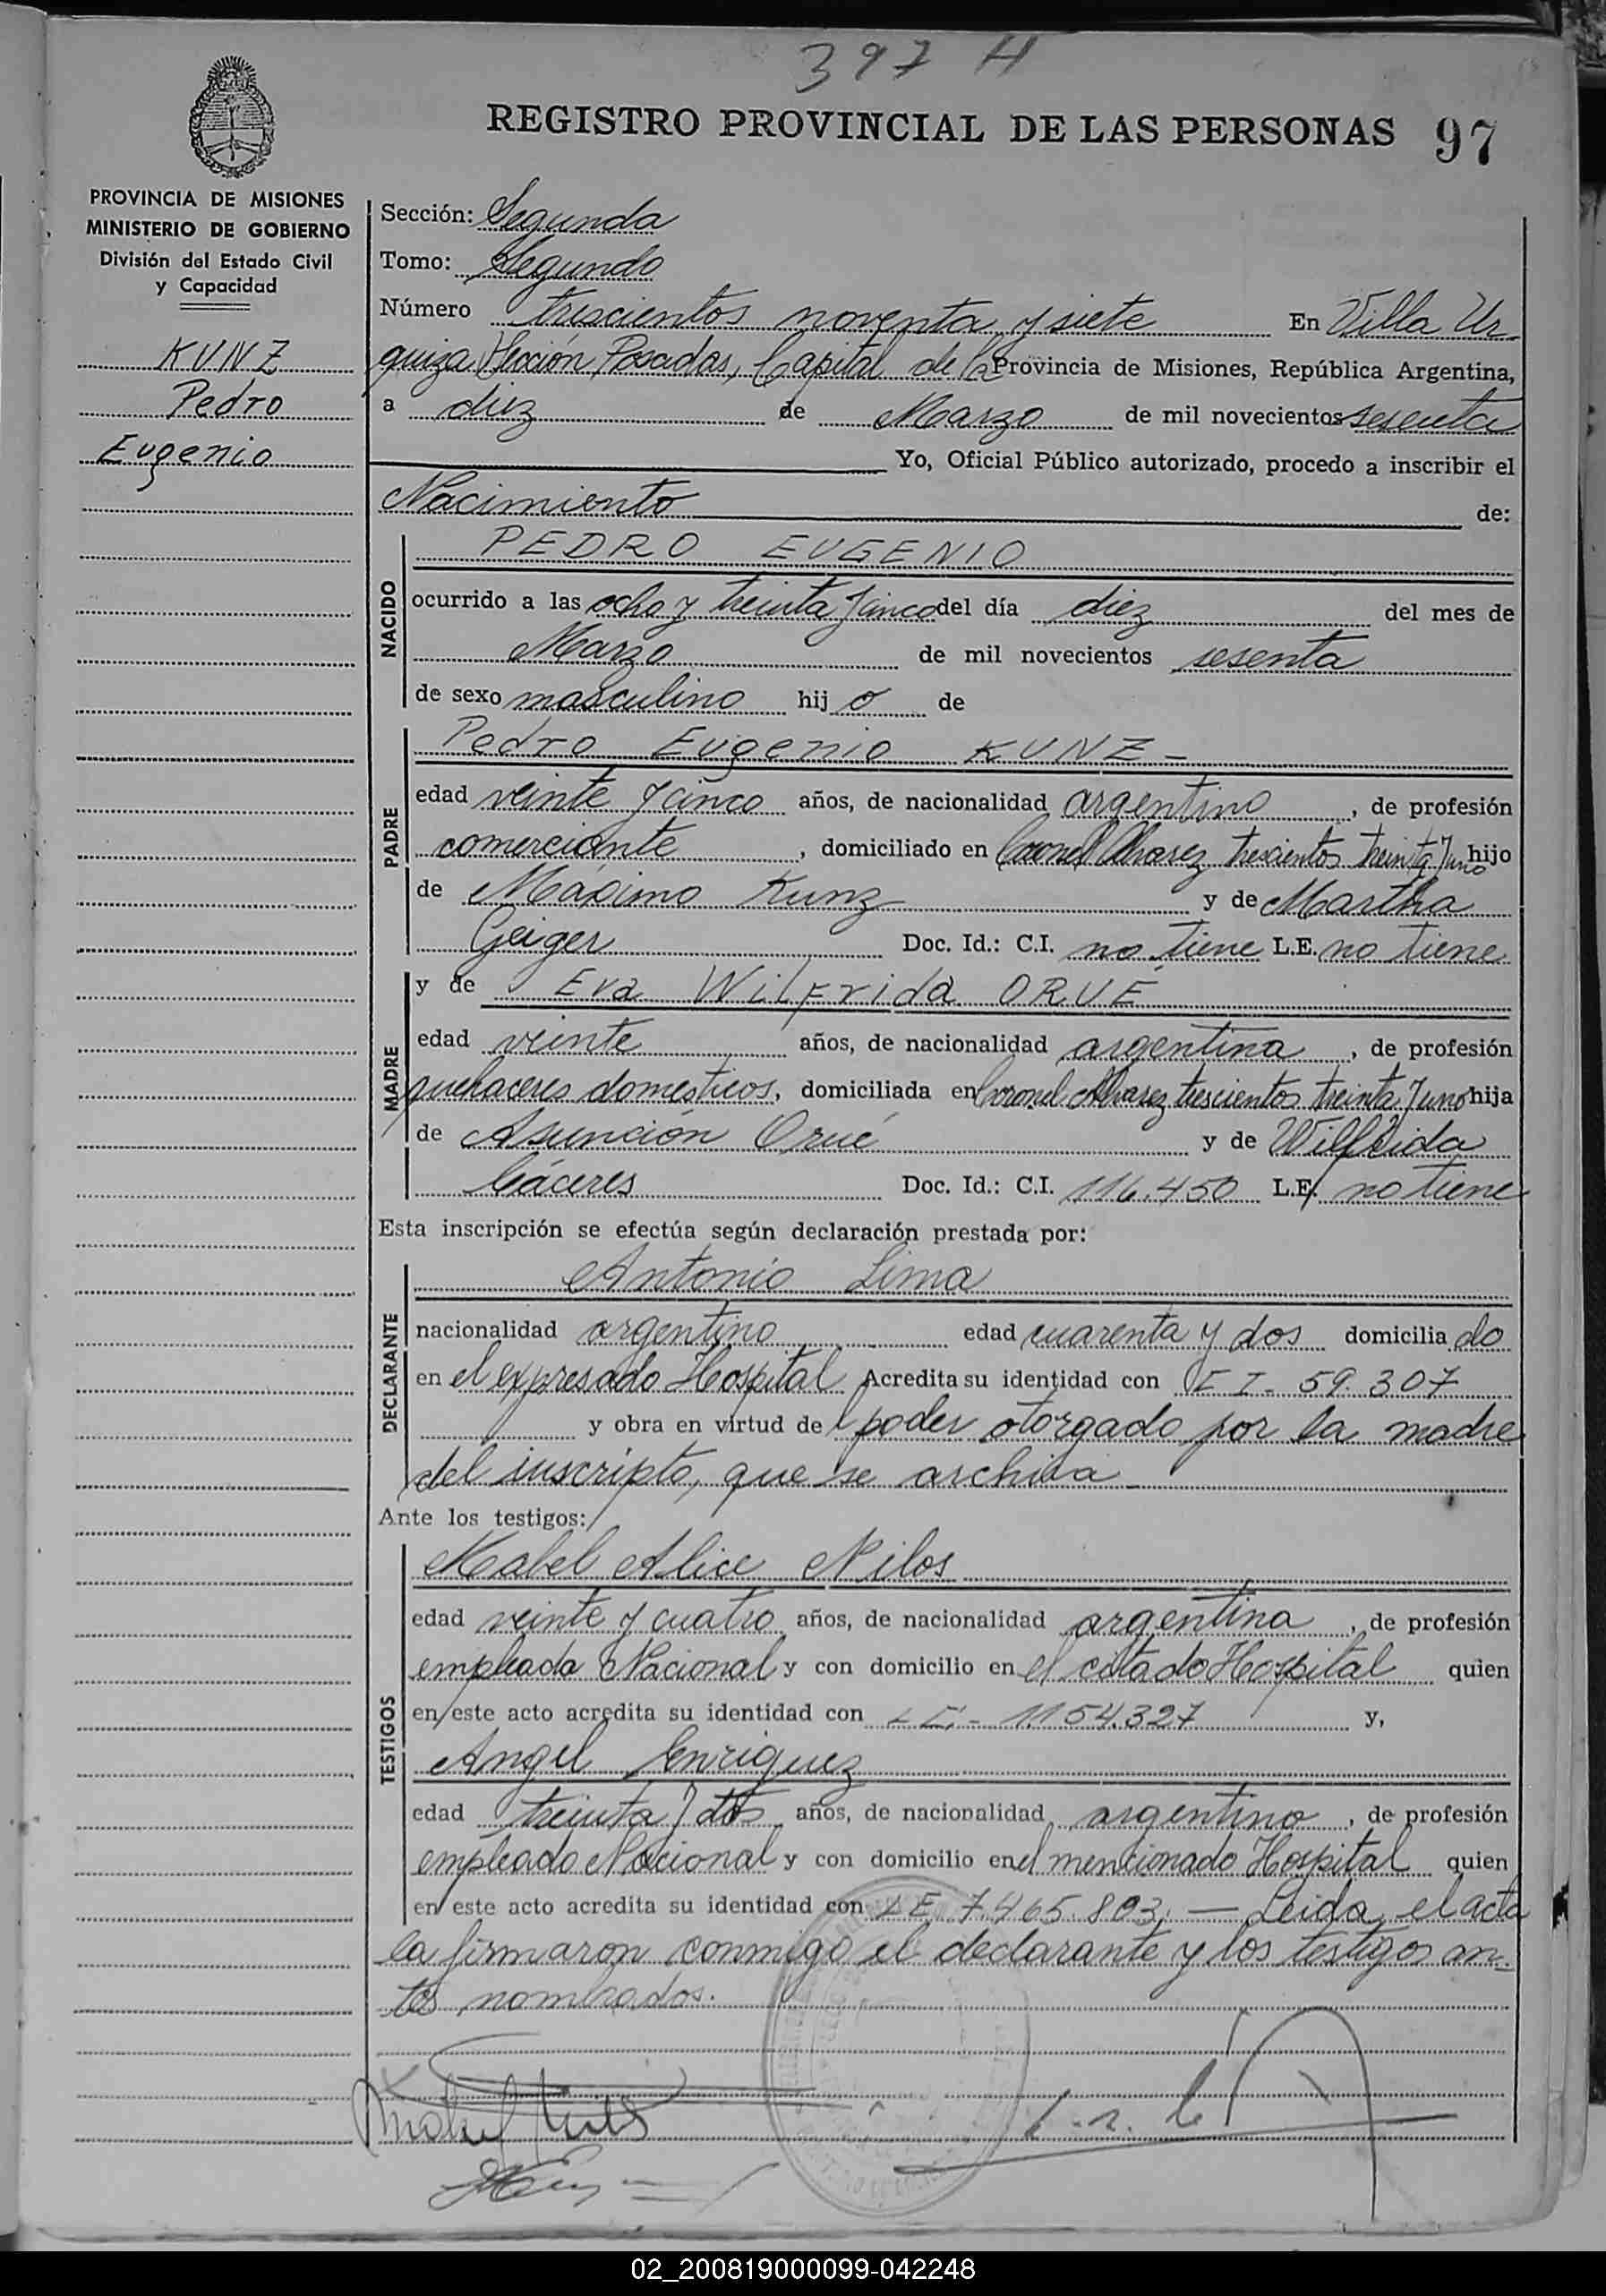 397 H
REGISTRO PROVINCIAL DE LAS PERSONAS 97
PROVINCIA DE MISIONES
MINISTERIO DE GOBIERNO
División del Estado Civil
y Capacidad
KUNZ
Pedro
Eugenio
Sección: Segunda
Tomo: Segundo
Número trescientos noventa y siete En Villa Ur
quiza Sección Posadas, Capital de la Provincia de Misiones, República Argentina,
a diez de Marzo de mil novecientos sesenta
Yo, Oficial Público autorizado, procedo a inscribir el
Nacimiento de:
NACIDO
PEDRO EUGENIO
ocurrido a las ocho y treinta y cinco del día diez del mes de
Marzo de mil novecientos sesenta
de sexo masculino hij o de
PADRE
Pedro Eugenio KUNZ -
edad veinte y cinco años, de nacionalidad argentino, de profesión
comerciante, domiciliado en Coronel Alvarez trescientos treinta y uno hijo
de Máximo Kunz y de Martha
Geiger Doc. Id.: C.I. no tiene L.E. no tiene
MADRE
y de Eva Wilfrida ORUÉ
edad veinte años, de nacionalidad argentina, de profesión
quehaceres domesticos, domiciliada en Coronel Alvarez trescientos treinta y uno hija
de Asunción Orué y de Wilfrida
Cáceres Doc. Id.: C.I. 116.450 L.E. no tiene
Esta inscripción se efectúa según declaración prestada por:
DECLARANTE
Antonio Lima
nacionalidad argentino edad cuarenta y dos domicilia do
en el expresado Hospital Acredita su identidad con C I - 59.307
y obra en virtud del poder otorgado por la madre
del inscripto, que se archiva
Ante los testigos:
TESTIGOS
Mabel Alice Nilos
edad veinte y cuatro años, de nacionalidad argentina, de profesión
empleada Nacional y con domicilio en el citado Hospital quien
en este acto acredita su identidad con 1.154.327 y,
Angel Enriquez
edad treinta y dos años, de nacionalidad argentino, de profesión
empleado Nacional y con domicilio en el mencionado Hospital quien
en este acto acredita su identidad con L E 7.465.803. — Leida el acta
la firmaron conmigo el declarante y los testigos an-
tes nombrados.
02_200819000099-042248